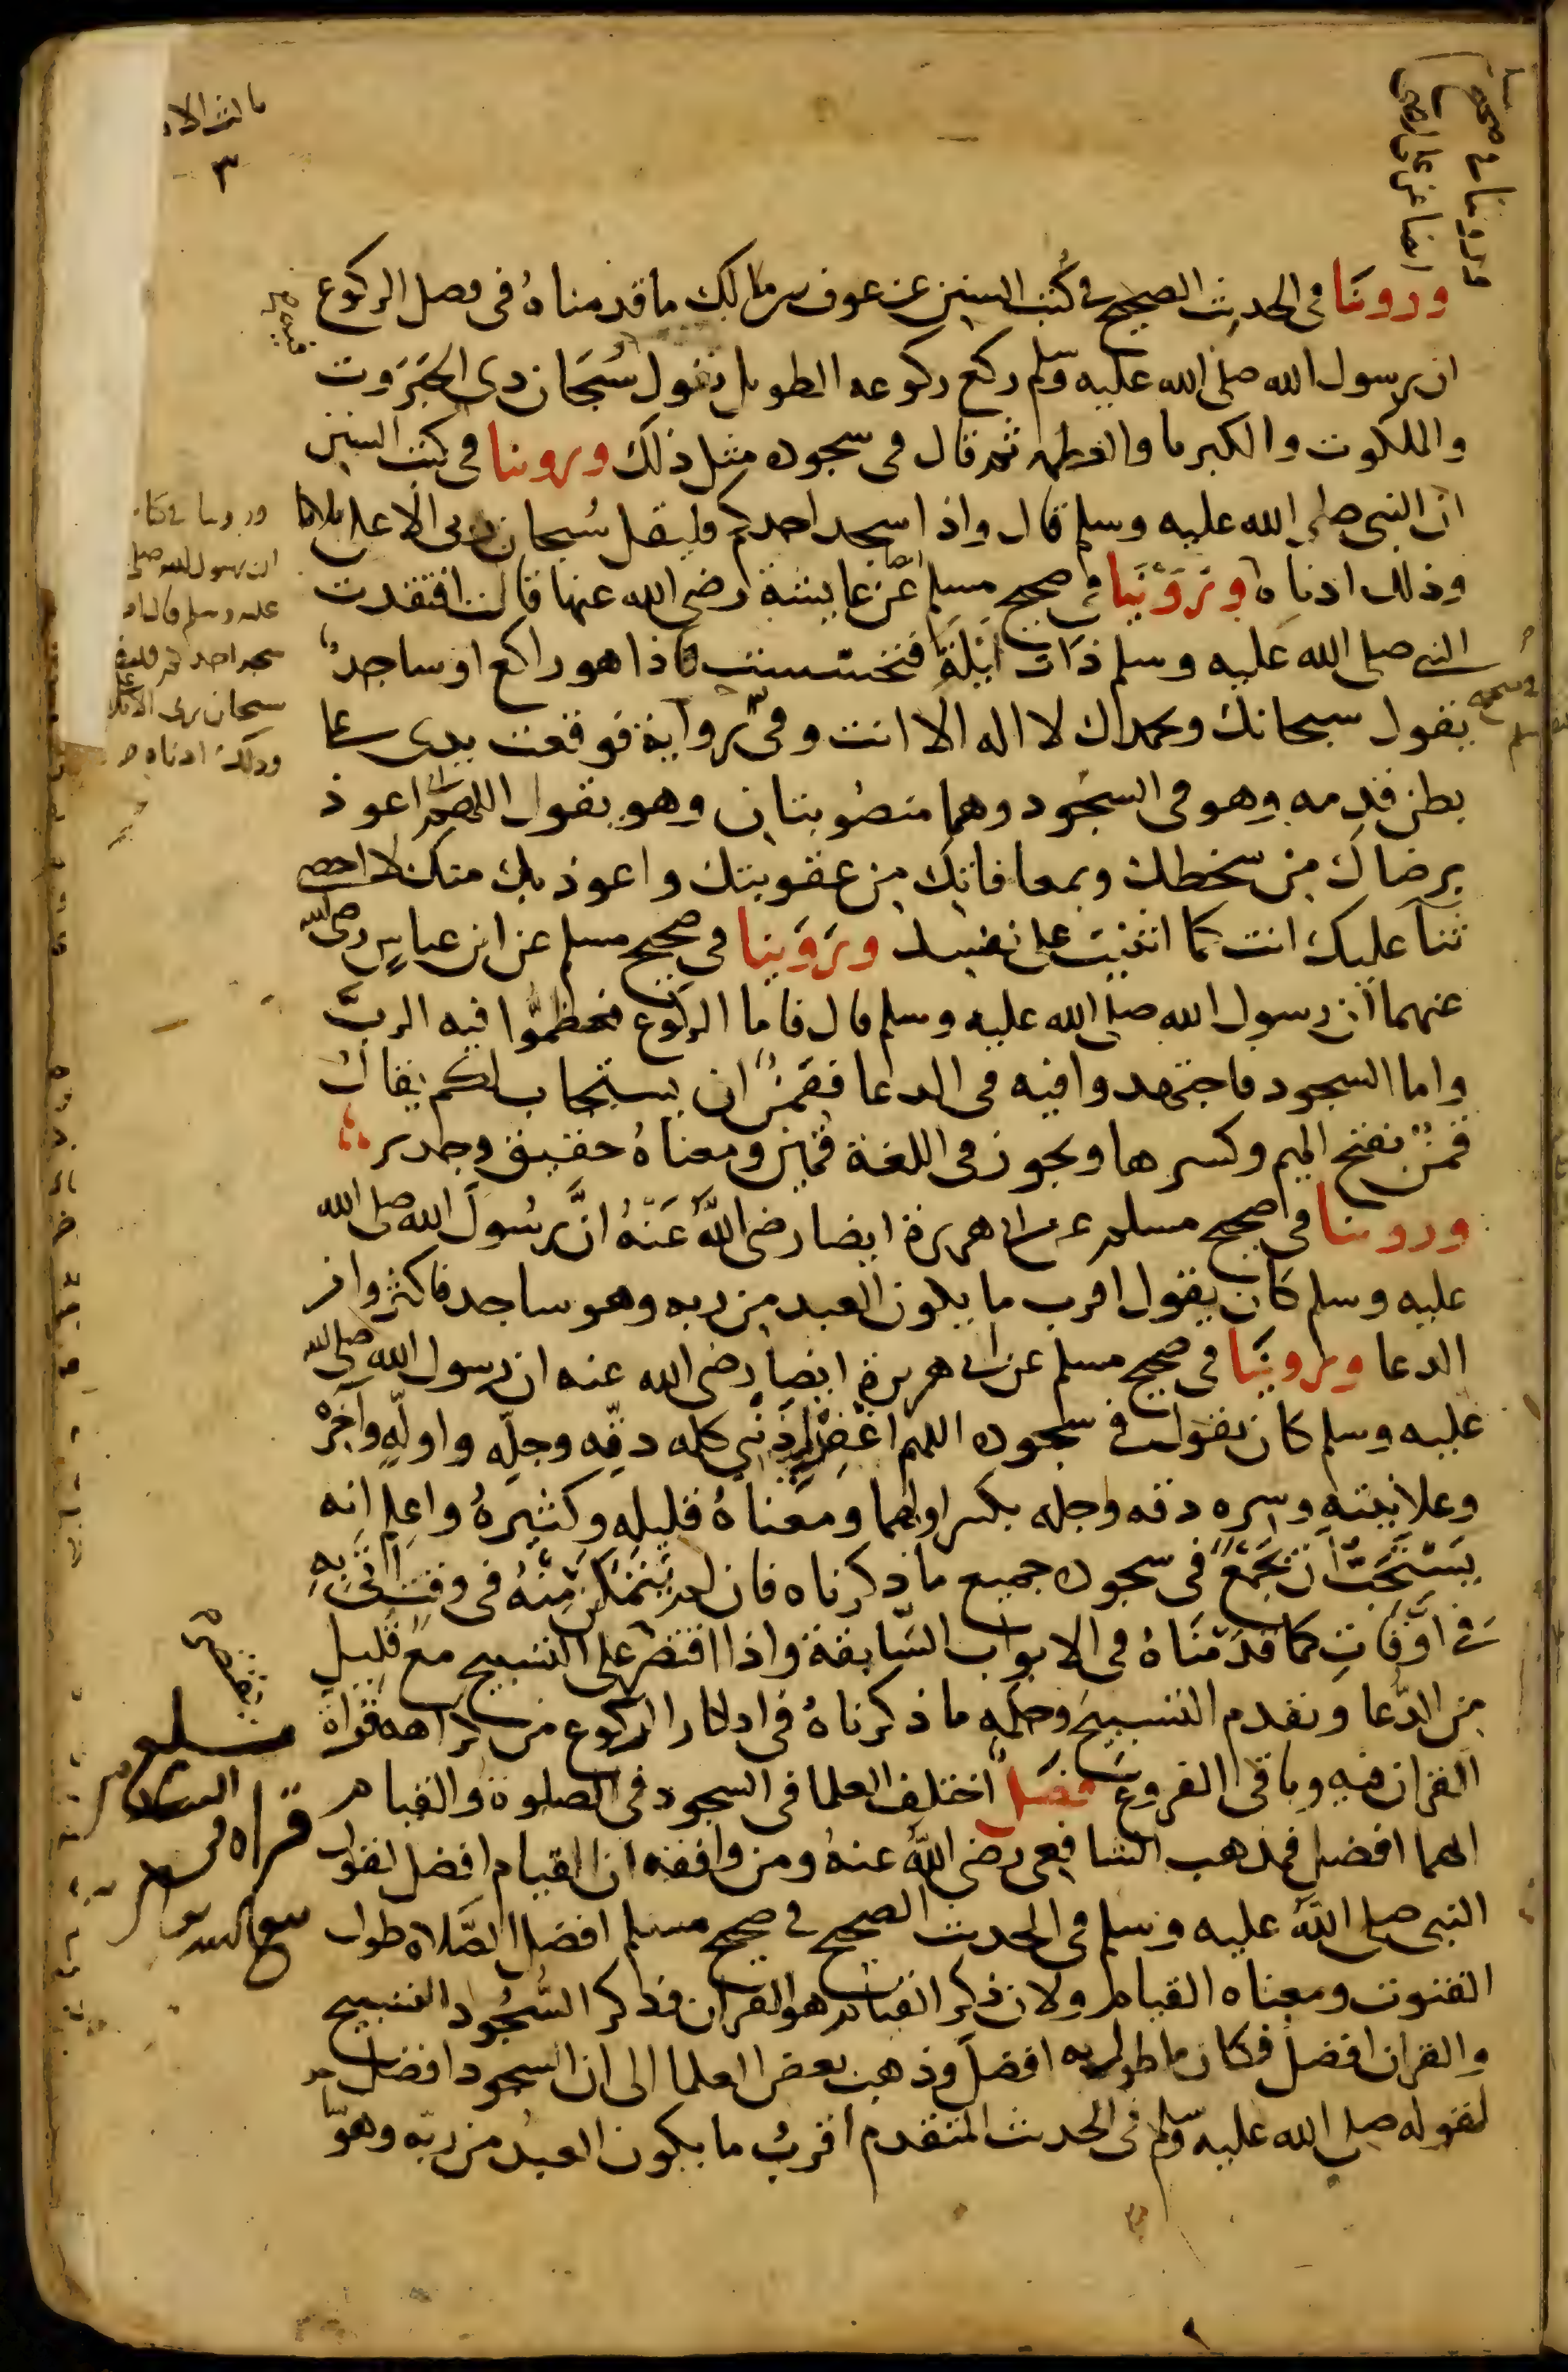 وروينا في الحديث الصحيح في كتب السنن عن عوف بن مالك ما قدمناه في فصل الركوع
ان رسول الله صلى الله عليه وسلم ركع ركوعه الطويل يقول سُبحان ذي الجَبَرَوت
والملكوت والكبريا والعظمه ثم قال في سجوده مثل ذلك وروينا في كتب السنن
ان النبي صلى الله عليه وسلم قال واذا سجد احدكم فليقل سُبحان ربي الاعلى ثلاثا
وذلك ادناه وَرَوَيْنَا في صحيح مسلم عن عايشة رضي الله عنها قالت افتقدت
النبي صلى الله عليه وسلم ذات ليلةٍ فتحسست فاذا هو راكع او ساجدٌ
يقول سبحانك وبحمدك لا اله الا انت وفي رواية فوقعت يدي على
بطن قدمه وهو في السجُود وهما منصُوبتان وهو يقول اللهم اعوذ
برضاك من سخطك وبمعافاتك من عقوبتك واعوذ بك منك لا احصي
ثنا عليك انت كما اثنيت على نفسك ورَوَينا في صحيح مسلم عن ابن عباسٍ رضي الله
عنهما ان رسول الله صلى الله عليه وسلم قال فاما الركوع فعظموا فيه الربَّ
واما السجود فاجتهدوا فيه في الدعا فقَمنٌ ان يستجاب لكم يقال
قمنٌ بفتح الميم وكسرها ويجوز في اللغة قمين ومعناهُ حقيق وجدير
وروينا في صحيح مسلم عن ابي هريرة ايضا رضي اللهُ عَنْهُ انَّ رسُولَ الله صلى الله
عليه وسلم كان يقول اقرب ما يكون العبد من ربه وهو ساجد فاكثروا من
الدعا وروينَا في صحيح مسلم عن ابي هريرة ايضا رضي الله عنه ان رسول الله صلى الله
عليه وسلم كان يقول في سجوده اللهم اغْفِرْ لي ذنْبي كله دِقّه وجِلّه واولَه وآخِرَهْ
وعلانيته وسره دقه وجله بكسر اولهما ومعناهُ قليله وكثيرهُ واعلم انه
يَسْتَحَبُّ ان تَجْمَعَ في سجوده جميع ما ذكرناه فان لم يَتَمَكَّن مِنْهُ في وقتٍ اتى بِهِ
في اوقاتٍ كما قدمْنَاهُ في الابواب السَّابقة واذا اقتصر على التسبيح معَ قليل
من الدُّعا وتقدم التسبيحَ وحكمه ما ذكرناهُ في اذكار الركوع من كراهه قراة
القران فيه وباقي الفروع فصل اختلف العلما في السجود في الصلوة والقيام
ايهما افضل فمذهب الشافعي رضي اللهُ عنهُ ومن وافقه ان القيام افضل لقول
النبي صلى اللهُ عليه وسلم في الحديث الصحيح في صحيح مسلم افضل الصَّلاه طول
القنوت ومعناه القيام ولان ذكر القيام هو القران وذكر السُّجُود التسبيح
والقران افضلُ فكان ما طول به افضلَ وذهب بعض العلما الى ان السجود افضل
لقوله صلى الله عليه وسلم في الحديث المتقدم اقربُ ما يكون العبدُ من ربّه وهو
سجد احدكم فليقل
سبحان ربي الاعلى
وذلك ادناه
٣